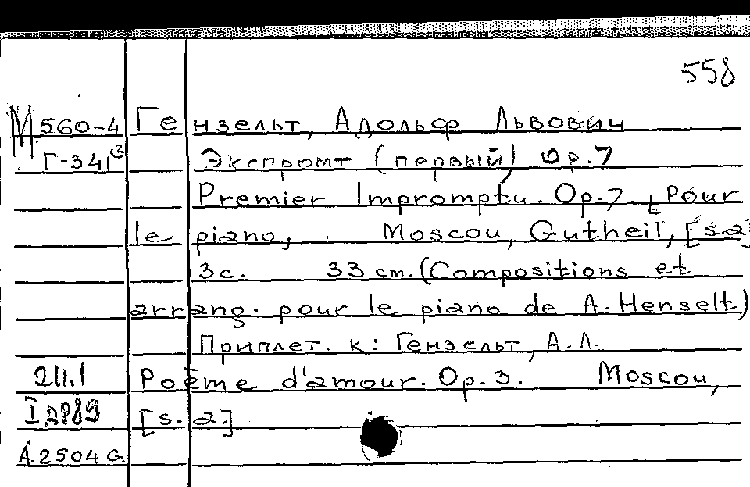 558
М 560-4 Гензельт, Адольф Львович
Г-341 Экспромт (первый) Op.7
Premier Impromptu. Op.7 [Pour
le piano, Moscou, Gutheil, [s.a]
3с. 33 cm. (Compositions et
arrang. pour le piano de A. Henselt)
Приплет. к: Гензельт, А.Л.
2Ц.1 Poème d'amour. Op.3. Moscou,
[s.a.]
A.2504 G.